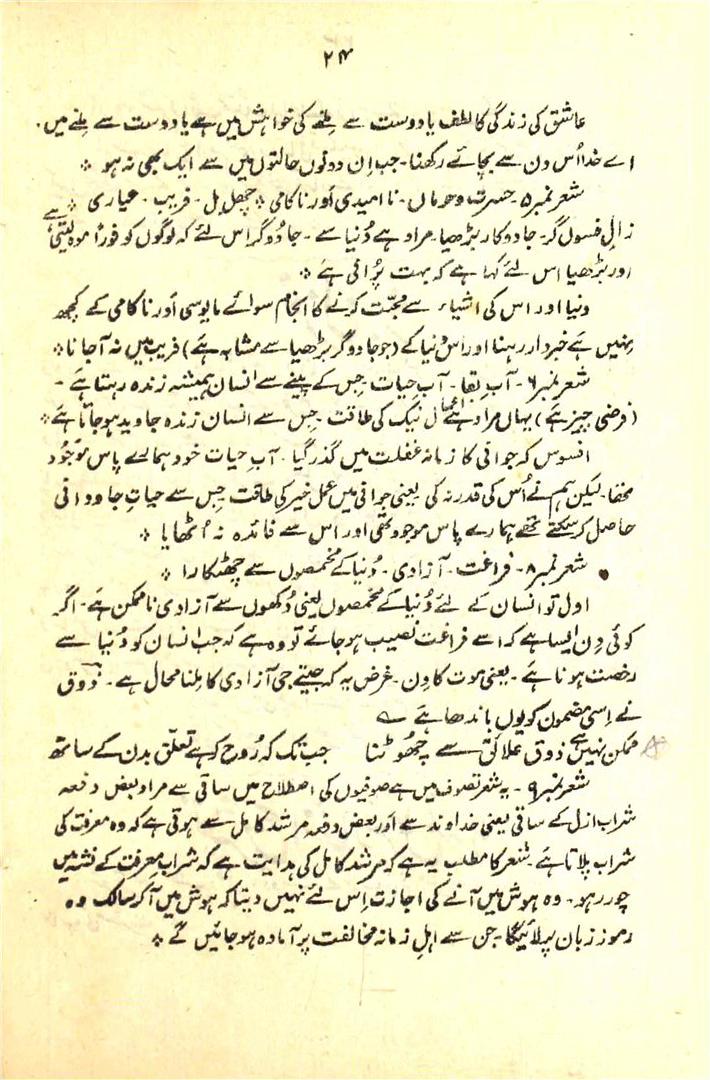 ۲۴
عاشق کی زندگی کا لطف یا دوست سے ملنے کی خواہش میں ہے یا دوست سے ملنے میں۔
اے خدا اُس دن سے بچائے رکھنا۔ جب اِن دونوں حالتوں میں سے ایک بھی نہ ہو ⁘
شعر نمبر ۵۔ حسرت و حرماں۔ نا امیدی اَور ناکامی ⁘ چھل بل۔ فریب۔ عیاری ⁘
زالِ فسوں گر۔ جادوکار بڑھیا۔ مراد ہے دُنیا سے۔ جادُوگر اِس لئے کہ لوگوں کو فوراً موہ لیتی ہے
اور بڑھیا اس لئے کہا ہے کہ بہت پُرانی ہے ⁘
دنیا اور اس کی اشیاء سے محبّت کرنے کا انجام سوائے مایوسی اَور ناکامی کے کچھ
نہیں ہے خبردار رہنا اور اس دُنیا کے (جو جادوگر بڑھیا سے مشابہ ہے) فریب میں نہ آجانا ⁘
شعر نمبر ۶۔ آبِ بقا۔ آبِ حیات۔ جِس کے پینے سے انسان ہمیشہ زندہ رہتا ہے۔
(فرضی چیز ہے) یہاں مراد ہے اعمال نیک کی طاقت۔ جس سے انسان زندہ جاوید ہو جاتا ہے ⁘
افسوس کہ جوانی کا زمانہ غفلت میں گذر گیا۔ آبِ حیات خود ہمارے پاس موجُود
تھا۔ لیکن ہم نے اُس کی قدر نہ کی یعنی جوانی میں عمل خیر کی طاقت جِس سے حیاتِ جاودانی
حاصل کر سکتے تھے ہمارے پاس موجود تھی اور اس سے فائدہ نہ اُٹھایا ⁘
شعر نمبر ۸۔ فراغت۔ آزادی۔ دُنیا کے مخمصوں سے چھٹکارا ⁘
اول تو انسان کے لئے دُنیا کے مخمصوں یعنی دُکھوں سے آزادی ناممکن ہے۔ اگر
کوئی دِن ایسا ہے کہ اسے فراغت نصیب ہو جائے تو وہ ہے کہ جب انسان کو دُنیا سے
رخصت ہونا ہے۔ یعنی موت کا دِن۔ غرض یہ کہ جیتے جی آزادی کا مِلنا محال ہے۔ ذوق
نے اِسی مضمون کو یوں باندھا ہے ؎
ممکن نہیں ہے ذوق علائق سے چھُوٹنا جب تک کہ رُوح کو ہے تعلّق بدن کے ساتھ
شعر نمبر ۹۔ یہ شعر تصوف میں ہے صوفیوں کی اصطلاح میں ساقی سے مراد بعض دفعہ
شراب ازل کے ساقی یعنی خداوند سے اَور بعض دفعہ مرشد کامل سے ہوتی ہے کہ وہ معرفت کی
شراب پلاتا ہے۔ شعر کا مطلب یہ ہے کہ مرشد کامل کی ہدایت ہے کہ شرابِ معرفت کے نشہ میں
چور رہو۔ وہ ہوش میں آنے کی اجازت اِس لئے نہیں دیتا کہ ہوش میں آکر سالک وہ
رموز زبان پر لائیگا۔ جن سے اہلِ زمانہ مخالفت پر آمادہ ہو جائیں گے ⁘